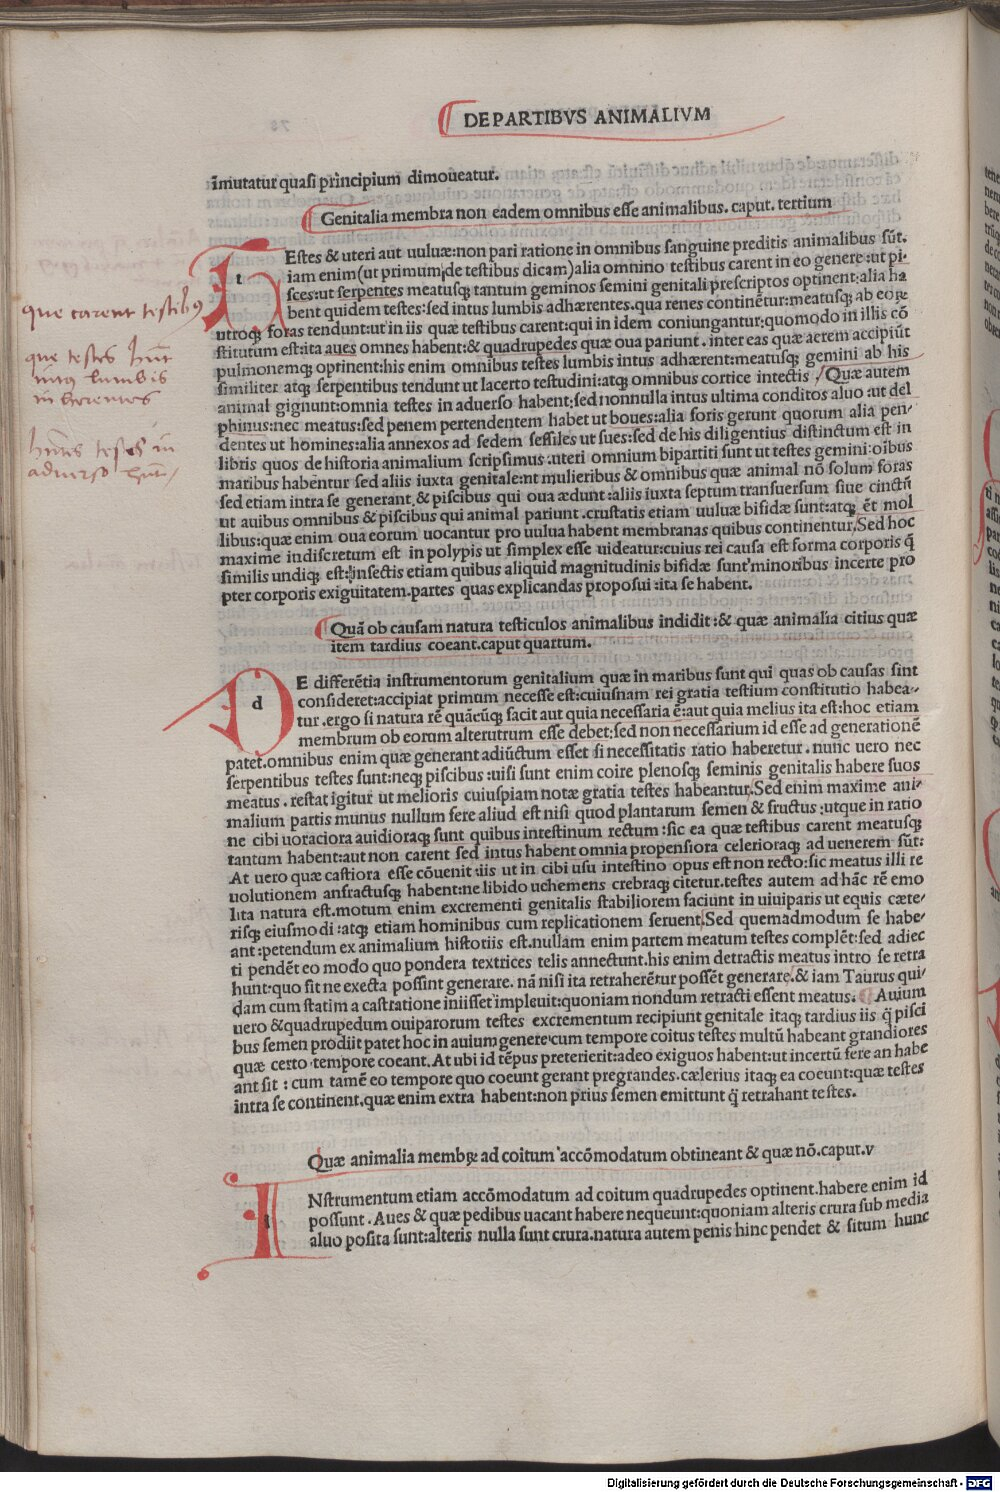 DE PARTIBVS ANIMALIVM
ĩmutatur quasi prĩncipium dimoueatur.
Genitalia membra non eadem omnibus esse animalibus. caput. tertium
t
Estes & uteri aut uuluæ:non pari ratione in omnibus sanguine preditis animalibus sũt.
iam enim(ut primum,de testibus dicam)alia omnino testibus carent in eo genere:ut pi-
sces:ut serpentes meatusq; tantum geminos semini genitali prescriptos optinent:alia ha
bent quidem testes:sed intus lumbis adhærentes.qua renes continẽtur:meatusq; ab eoꝝ
utroq; foras tendunt:ut in iis quæ testibus carent:qui in idem coniungantur:quomodo in illis cõ
stitutum est:ita aues omnes habent:& quadrupedes quæ oua pariunt. inter eas quæ aerem accipiũt
pulmonemq; optinent:his enim omnibus testes lumbis intus adhærent:meatusq; gemini ab his
similiter atq; serpentibus tendunt ut lacerto testudini:atq; omnibus cortice intectis. Quæ autem
animal gignunt:omnia testes in aduerso habent:sed nonnulla intus ultima conditos aluo :ut del
phinus:nec meatus:sed penem pertendentem habet ut boues:alia foris gerunt quorum alia pen-
dentes ut homines:alia annexos ad sedem sessiles ut sues:sed de his diligentius distinctum est in
libris quos de historia animalium scripsimus:uteri omnium bipartiti sunt ut testes gemini:oĩbus
maribus habentur sed aliis iuxta genitale:nt mulieribus & omnibus quæ animal nõ solum foras
sed etiam intra se generant & piscibus qui oua ædunt:aliis iuxta septum transuersum siue cinctũ
ut auibus omnibus & piscibus qui animal pariunt.crustatis etiam uuluæ bifidæ sunt:atq; ẽt mol
libus:quæ enim oua eorum uocantur pro uulua habent membranas quibus continentur.Sed hoc
maxime indiscretum est in polypis ut simplex esse uideatur:cuius rei causa est forma corporis q̃
similis undiq; est:insectis etiam quibus aliquid magnitudinis bifidæ sunt:minoribus incerte pro
pter corporis exiguitatem.partes quas explicandas proposui:ita se habent.
Quã ob causam natura testiculos animalibus indidit:& quæ animalia citius quæ
item tardius coeant.caput quartum.
d
E differẽtia instrumentorum genitalium quæ in maribus sunt qui quas ob causas sint
consideret:accipiat primum necesse est:cuiusnam rei gratia testium constitutio habea-
tur.ergo si natura rẽ quãcũq; facit aut quia necessaria ẽ:aut quia melius ita est:hoc etiam
membrum ob eorum alterutrum esse debet:sed non necessarium id esse ad generationẽ
patet.omnibus enim quæ generant adiũctum esset si necessitatis ratio haberetur. nunc uero nec
serpentibus testes sunt:neq; piscibus:uisi sunt enim coire plenosq; seminis genitalis habere suos
meatus. restat igitur ut melioris cuiuspiam notæ gratia testes habeantur.Sed enim maxime ani-
malium partis munus nullum fere aliud est nisi quod plantarum semen & fructus:utque in ratio
ne cibi uoraciora auidioraq; sunt quibus intestinum rectum:sic ea quæ testibus carent meatusq;
tantum habent:aut non carent sed intus habent omnia propensiora celerioraq; ad uenerem sũt:
At uero quæ castiora esse cõuenit:iis ut in cibi usu intestino opus est non recto:sic meatus illi re
uolutionem anfractusq; habent:ne libido uehemens crebraq; citetur.testes autem ad hãc rẽ emo
lita natura est.motum enim excrementi genitalis stabiliorem faciunt in uiuiparis ut equis cæte-
risq; eiusmodi:atq; etiam hominibus cum replicationem seruent.Sed quemadmodum se habe-
ant:petendum ex animalium historiis est.nullam enim partem meatum testes complẽt:sed adiec
ti pendẽt eo modo quo pondera textrices telis annectunt.his enim detractis meatus intro se retra
hunt:quo sit ne execta possint generare. nã nisi ita retraherẽtur possẽt generare.& iam Taurus qui-
dam cum statim a castratione iniisset impleuit:quoniam nondum retracti essent meatus. Auium
uero & quadrupedum ouiparorum testes excrementum recipiunt genitale itaq; tardius iis q̃ pisci
bus semen prodiit patet hoc in auium genere:cum tempore coitus testes multũ habeant grandiores
quæ certo tempore coeant.At ubi id tẽpus preterierit:adeo exiguos habent:ut incertũ fere an habe
ant sit : cum tamẽ eo tempore quo coeunt gerant pregrandes.cælerius itaq; ea coeunt:quæ testes
intra se continent.quæ enim extra habent:non prius semen emittunt q̃ retrahant testes.
Quæ animalia membꝝ ad coitum accõmodatum obtineant & quæ nõ.caput.v
i
Nstrumentum etiam accõmodatum ad coitum quadrupedes optinent.habere enim id
possunt.Aues & quæ pedibus uacant habere nequeunt:quoniam alteris crura sub media
aluo posita sunt:alteris nulla sunt crura.natura autem penis hinc pendet & situm hunc
que carent testibus
que testes hñt
intus lumbis
inherentes
hñtes testes in
aduerso hñt
Digitalisierung gefördert durch die Deutsche Forschungsgemeinschaft - DFG